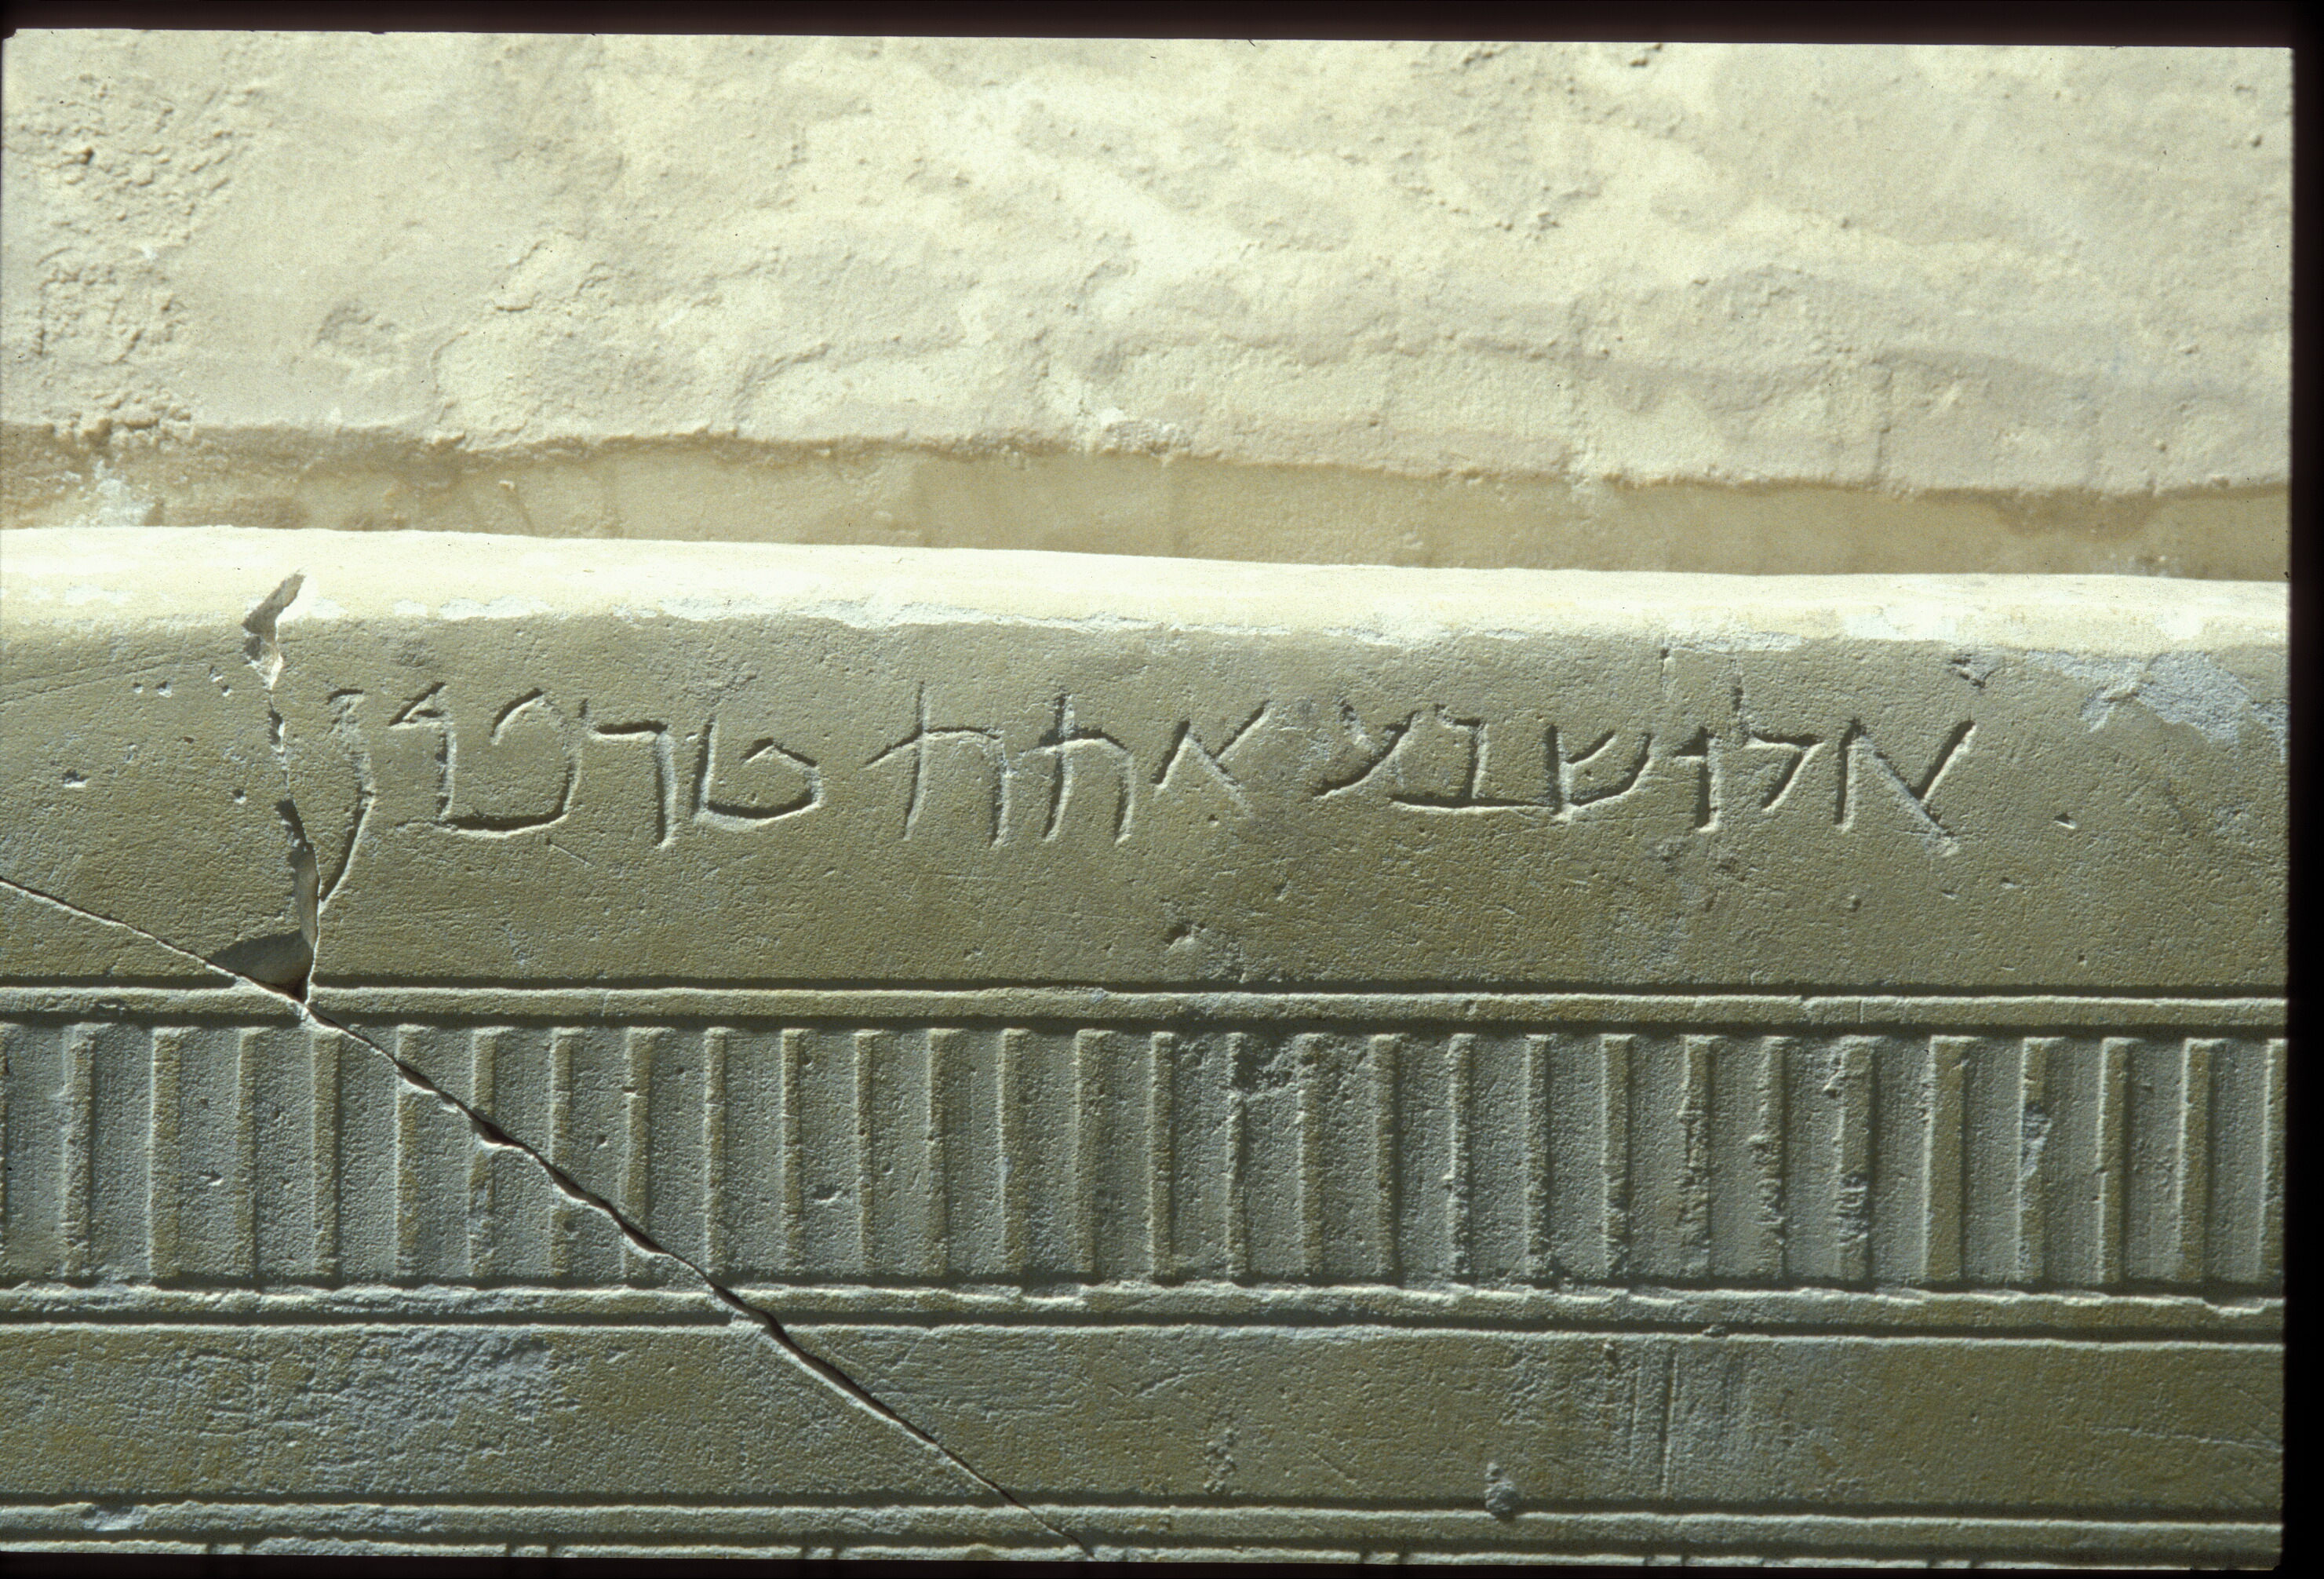 אלישבע אתת טרפון